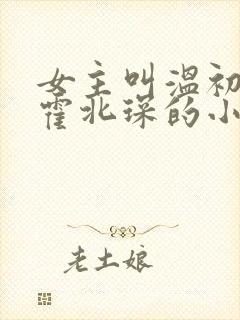 女主叫温初
霍北琛的小
老土娘